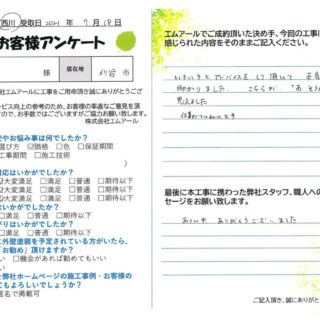 西川 受取日 2021年 7月18日
お客様アンケート
様 居住地 刈谷市
社エムアールに工事をご用命頂き誠にありがとうござ
ービス向上の参考のため、お客様の率直なご意見を頂
ますので、お手数ではございますがご協力お願い致します。
株式会社エムアール
安やお悩み事は何でしたか?
選び方 ☑価格 □色 □保証期間
工事期間 □施工箇所
対応はいかがでしたか?
大変満足 □満足 □普通 □期待以下
大変満足 □満足 □普通 □期待以下
大変満足 □満足 □普通 □期待以下
がりはいかがでしたか?
□満足 □普通 □期待以下
はいかがでしたか?
□満足 □普通 □期待以下
に外壁塗装を予定されている方がいたら、
「お勧め」頂けますか?
い □機会があれば勧めてもいい
い
を弊社ホームページの施工事例・お客様の
てもよろしいでしょうか?
匿名で掲載可
エムアールでご成約頂いた決め手、今回の工事に
感じられた内容をそのままご記入ください。
いろいろと アドバイスを して頂いて
助かりました。 こちらが
思えました
最後に本工事に携わった弊社スタッフ、職人への
セージをお願い致します。
あつい中 ありがとうございました
ご記入頂き、誠にありがと